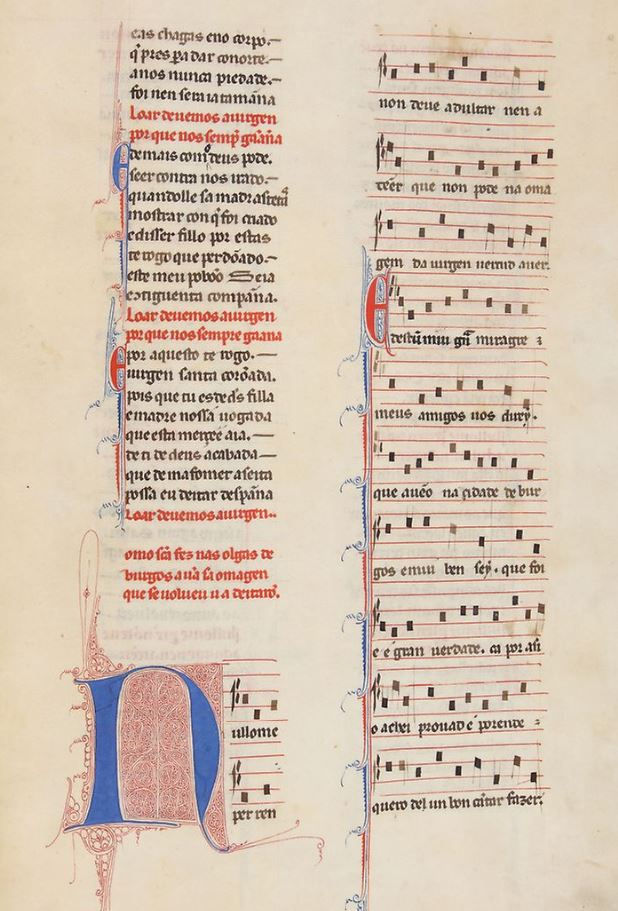 eas chagas eno corpo.
q̄ pres p̱a dar conorte.
anos nunca piedade.
foi nen sera ia tamãna
Loar deuemos auirgen
por que nos semp̄ gãana
Demais com̊ deus pode.
seer contra nos irado.
quandolle sa madr a teta
mostrar con q̄ foi criado
e disser fillo por estas
te rogo que perdõado.
este meu poboo Seia
contigu en ta compãna.
Loar deuemos auirgen
por que nos sempre gãana
E por aquesto te rogo.
uirgen santa corõada.
pois que tu es de d̄s filla
e madre nossa uogada
que esta merçee aia.
de ti de deus acabada
que de mafomet a seita
possa eu deitar despãna
Loar deuemos auirgen.
omo sc̃a fez nas olgas de
burgos a ũa sa omagen
que se uolueu
Nullome
per ren
non deue adultar nen a
tẽer que non pode na oma
gem da uirgen uertud auer.
E dest ũ mui gr̃a miragre
meus amigos uos direy.
que auẽo na çidade de bur
gos e mui ben sey. que foi
e é gran uerdade. ca por assi
o achei prouad é porende
quero del un bon cãtar fazer.